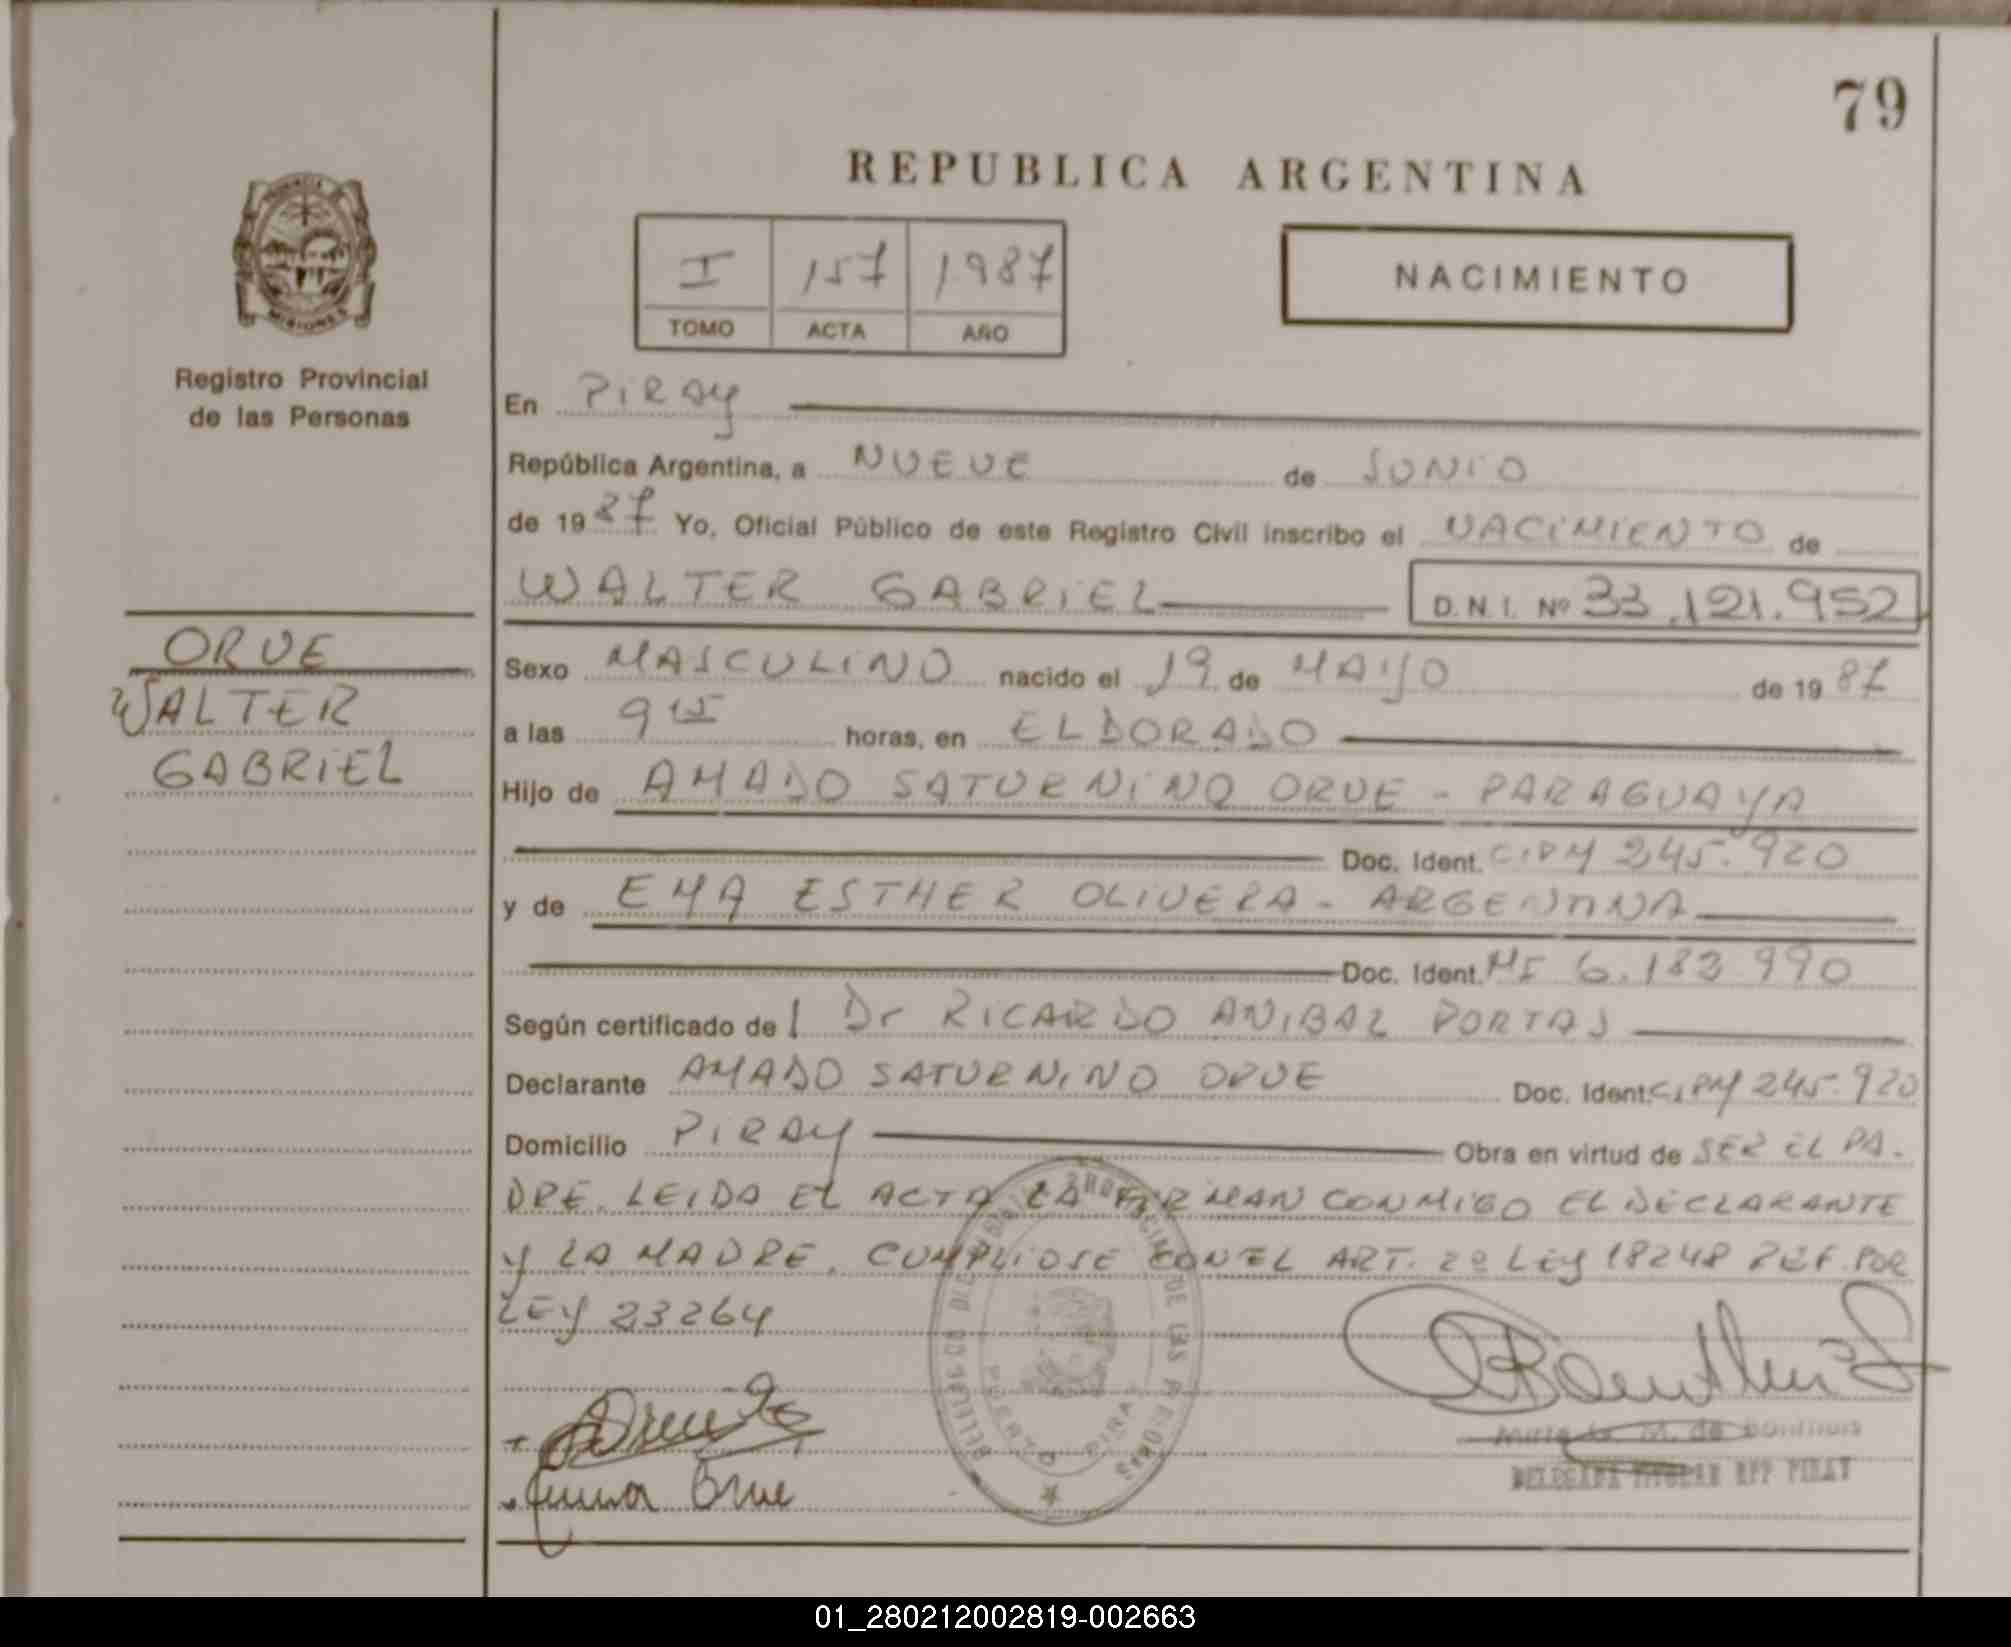 79
REPUBLICA ARGENTINA
MISIONES
Registro Provincial
de las Personas
I 157 1987
TOMO ACTA AÑO
NACIMIENTO
En PIRAY
República Argentina, a NUEVE de JUNIO
de 1987 Yo, Oficial Público de este Registro Civil inscribo el NACIMIENTO de
WALTER GABRIEL D.N.I. Nº 33.121.952
ORUE
WALTER
GABRIEL
Sexo MASCULINO nacido el 19 de MAYO de 1987
a las 9 15 horas, en ELDORADO
Hijo de AMADO SATURNINO ORUE - PARAGUAYA
Doc. Ident. CIPM 245.920
y de EMA ESTHER OLIVERA - ARGENTINA
Doc. Ident. MI 6.183 990
Según certificado de l Dr RICARDO ANIBAL PORTAS
Declarante AMADO SATURNINO ORUE Doc. Ident. CIPM 245.920
Domicilio PIRAY Obra en virtud de SER EL PA-
DRE. LEIDA EL ACTA LA FIRMAN CONMIGO EL DECLARANTE
Y LA MADRE. CUMPLIOSE CON EL ART. 2º LEY 18248 REF. POR
LEY 23264
DE LAS PERSONAS
PIRAY
Orue
M. de
DELEGADA TITULAR RPP PIRAY
01_280212002819-002663